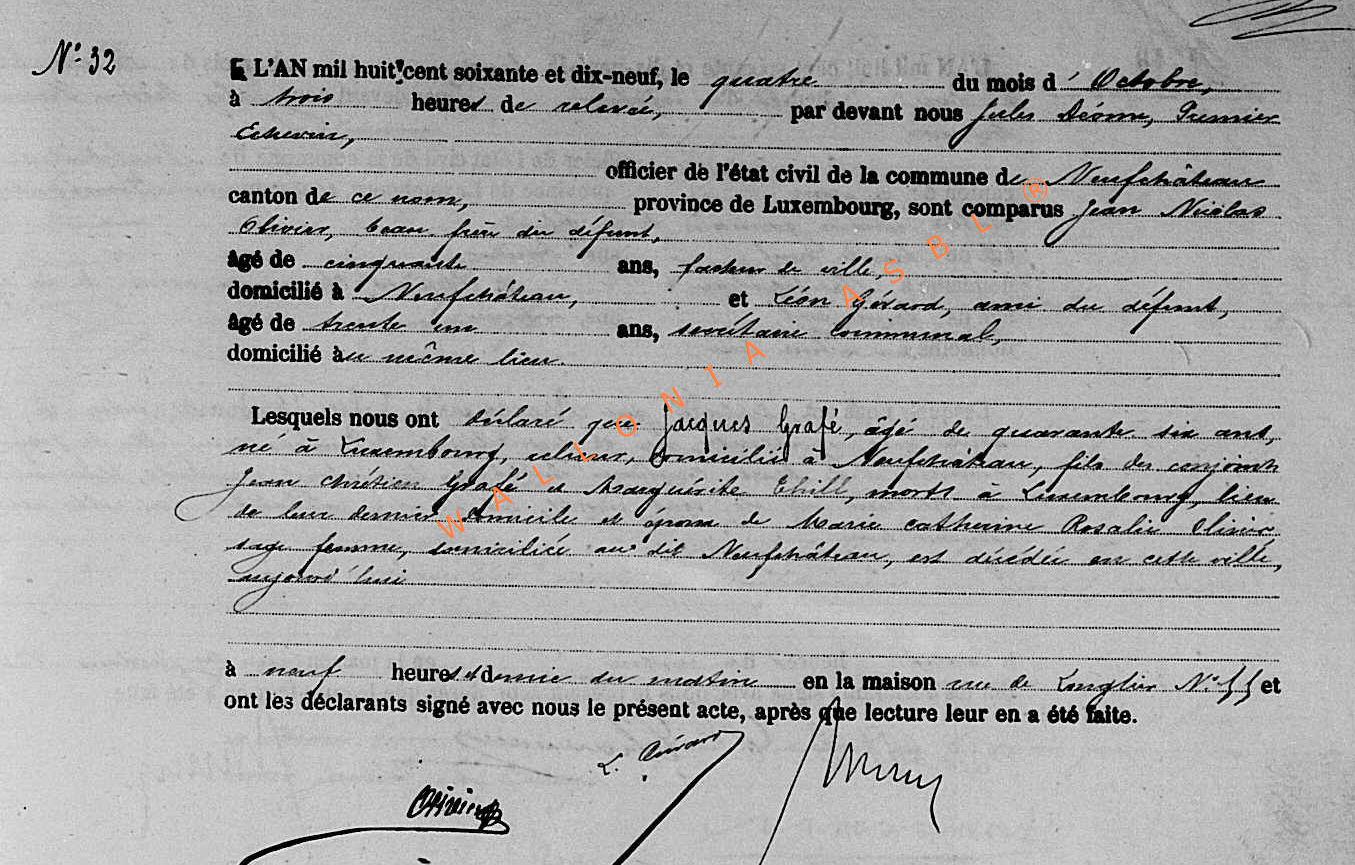 N° 32
L'AN mil huit cent soixante et dix-neuf, le quatre du mois d' Octobre,
à trois heures de relevée, par devant nous Jules Déome, Premier
Echevin,
officier de l'état civil de la commune de Neufchâteau
canton de ce nom, province de Luxembourg, sont comparus Jean Nicolas
Olivier, beau frère du défunt,
âgé de cinquante ans, facteur de ville,
domicilié à Neufchâteau, et Léon Gérard, ami du défunt,
âgé de trente un ans, secrétaire communal,
domicilié au même lieu
Lesquels nous ont déclaré que Jacques Grafé, âgé de quarante six ans,
né à Luxembourg, relieur, domicilié à Neufchâteau, fils des conjoints
Jean Chrétien Grafé et Marguérite Thill, morts à Luxembourg, lieu
de leur dernier domicile et époux de Marie Catherine Rosalie Olivier
sage femme, domiciliée au dit Neufchâteau, est décédé en cette ville,
aujourd'hui
à neuf heures et demie du matin en la maison rue de Longlier N° 55 et
ont les déclarants signé avec nous le présent acte, après que lecture leur en a été faite.
L. Gérard
Olivier
WALLONIA ASBL ®